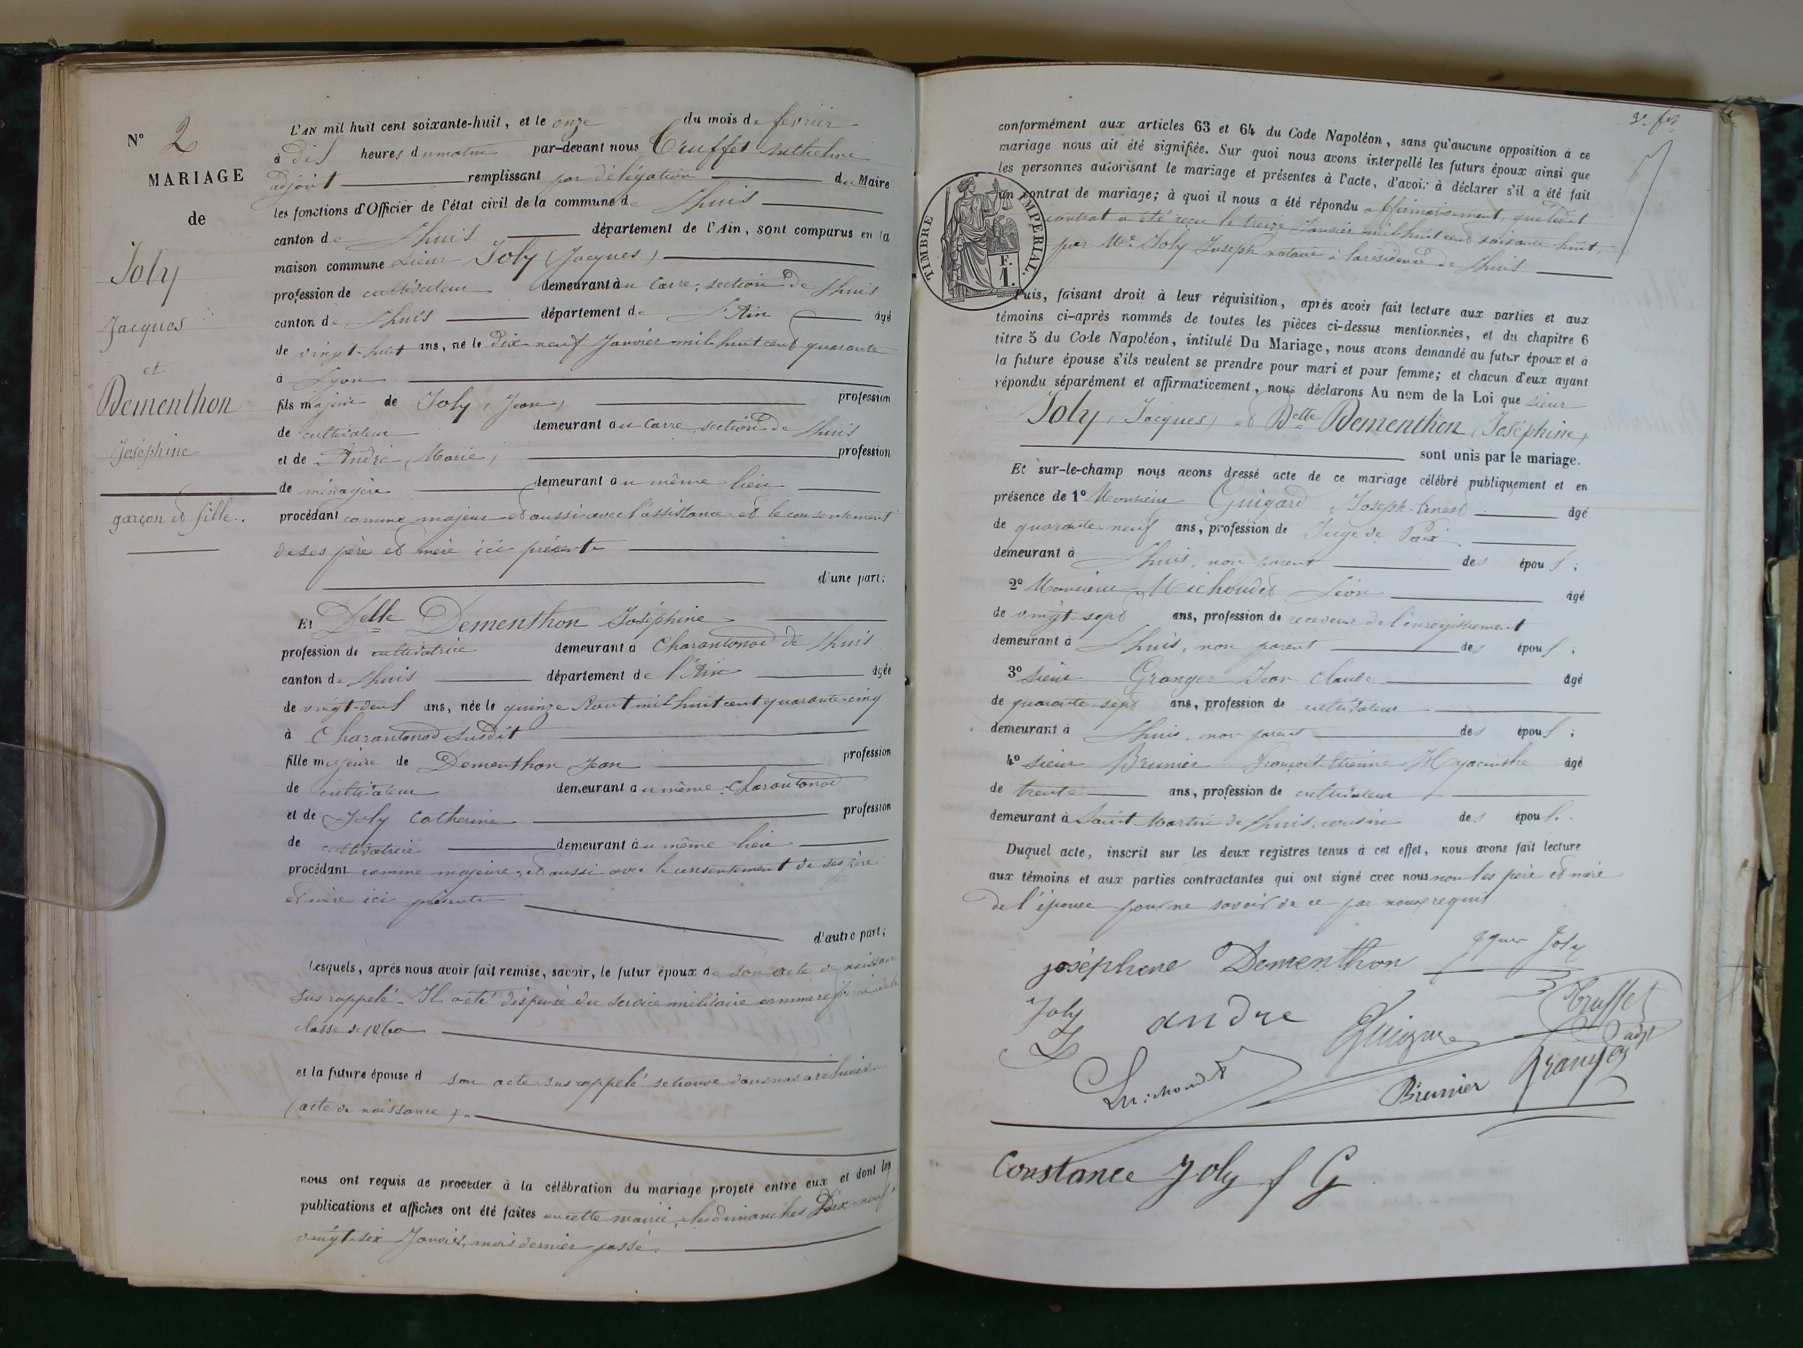 N° 2
MARIAGE
de
Joly
Jacques
et
Dementhon
Joséphine
garçon et fille.
L'AN mil huit cent soixante-huit, et le onze du mois de février
à dix heures du matin par-devant nous Truffet Anthelme
adjoint remplissant par délégation du Maire
les fonctions d'Officier de l'état civil de la commune de Lhuis
canton de Lhuis département de l'Ain, sont comparus en la
maison commune Sieur Joly (Jacques)
profession de cultivateur demeurant à section de Lhuis
canton de Lhuis département de l'Ain âgé
de vingt-huit ans, né le dix-neuf Janvier mil huit cent quarante
à Lyon
fils majeur de Joly (Jean) profession
de cultivateur demeurant à section de Lhuis
et de André (Marie) profession
de ménagère demeurant au même lieu
procédant comme majeur et aussi avec l'assistance et le consentement
de ses père et mère ici présents
d'une part;
Et Delle Dementhon Joséphine
profession de cultivatrice demeurant à Charantonod de Lhuis
canton de Lhuis département de l'Ain âgée
de vingt-deux ans, née le quinze Août mil huit cent quarante-cinq
à Charantonod susdit
fille majeure de Dementhon Jean profession
de cultivateur demeurant au même Charantonod
et de Joly Catherine profession
de cultivatrice demeurant au même lieu
procédant comme majeure, et aussi avec le consentement de ses père
et mère ici présents
d'autre part;
Lesquels, après nous avoir fait remise, savoir, le futur époux de son acte de naissance
sus rappelé. Il a été dispensé du service militaire comme
classe de 1860
et la future épouse d son acte sus rappelé se trouve dans nos archives
(acte de naissance).
nous ont requis de procéder à la célébration du mariage projeté entre eux et dont les
publications et affiches ont été faites en cette mairie, les dimanches Dix-neuf et
vingt-six Janvier, mois dernier passé.
conformément aux articles 63 et 64 du Code Napoléon, sans qu'aucune opposition à ce
mariage nous ait été signifiée. Sur quoi nous avons interpellé les futurs époux ainsi que
les personnes autorisant le mariage et présentes à l'acte, d'avoir à déclarer s'il a été fait
un contrat de mariage; à quoi il nous a été répondu affirmativement, que ledit
contrat a été reçu le treize Janvier mil huit cent soixante huit,
par Me Joly Joseph notaire à la résidence de Lhuis
TIMBRE IMPÉRIAL.
F. 1.
Puis, faisant droit à leur réquisition, après avoir fait lecture aux parties et aux
témoins ci-après nommés de toutes les pièces ci-dessus mentionnées, et du chapitre 6
titre 5 du Code Napoléon, intitulé Du Mariage, nous avons demandé au futur époux et à
la future épouse s'ils veulent se prendre pour mari et pour femme; et chacun d'eux ayant
répondu séparément et affirmativement, nous déclarons Au nom de la Loi que Sieur
Joly (Jacques) et Delle Dementhon (Joséphine)
sont unis par le mariage.
Et sur-le-champ nous avons dressé acte de ce mariage célébré publiquement et en
présence de 1° Monsieur Guigard Joseph-Ernest âgé
de quarante-neuf ans, profession de Juge de Paix
demeurant à Lhuis, non parent des époux;
2° Monsieur Michoudet Léon âgé
de vingt sept ans, profession de receveur de l'enregistrement
demeurant à Lhuis, non parent des époux;
3° Sieur Granger Jean Claude âgé
de quarante-sept ans, profession de cultivateur
demeurant à Lhuis, non parent des époux;
4° Sieur Brunier François Etienne Hyacinthe âgé
de trente ans, profession de cultivateur
demeurant à Saint Martin de Lhuis, cousin des époux.
Duquel acte, inscrit sur les deux registres tenus à cet effet, nous avons fait lecture
aux témoins et aux parties contractantes qui ont signé avec nous non les père et mère
de l'épouse pour ne savoir de ce par nous requis
joséphine Dementhon Joly
Joly andre Guigard Truffet adjt
Michoudet Brunier Granger
Constance Joly f G